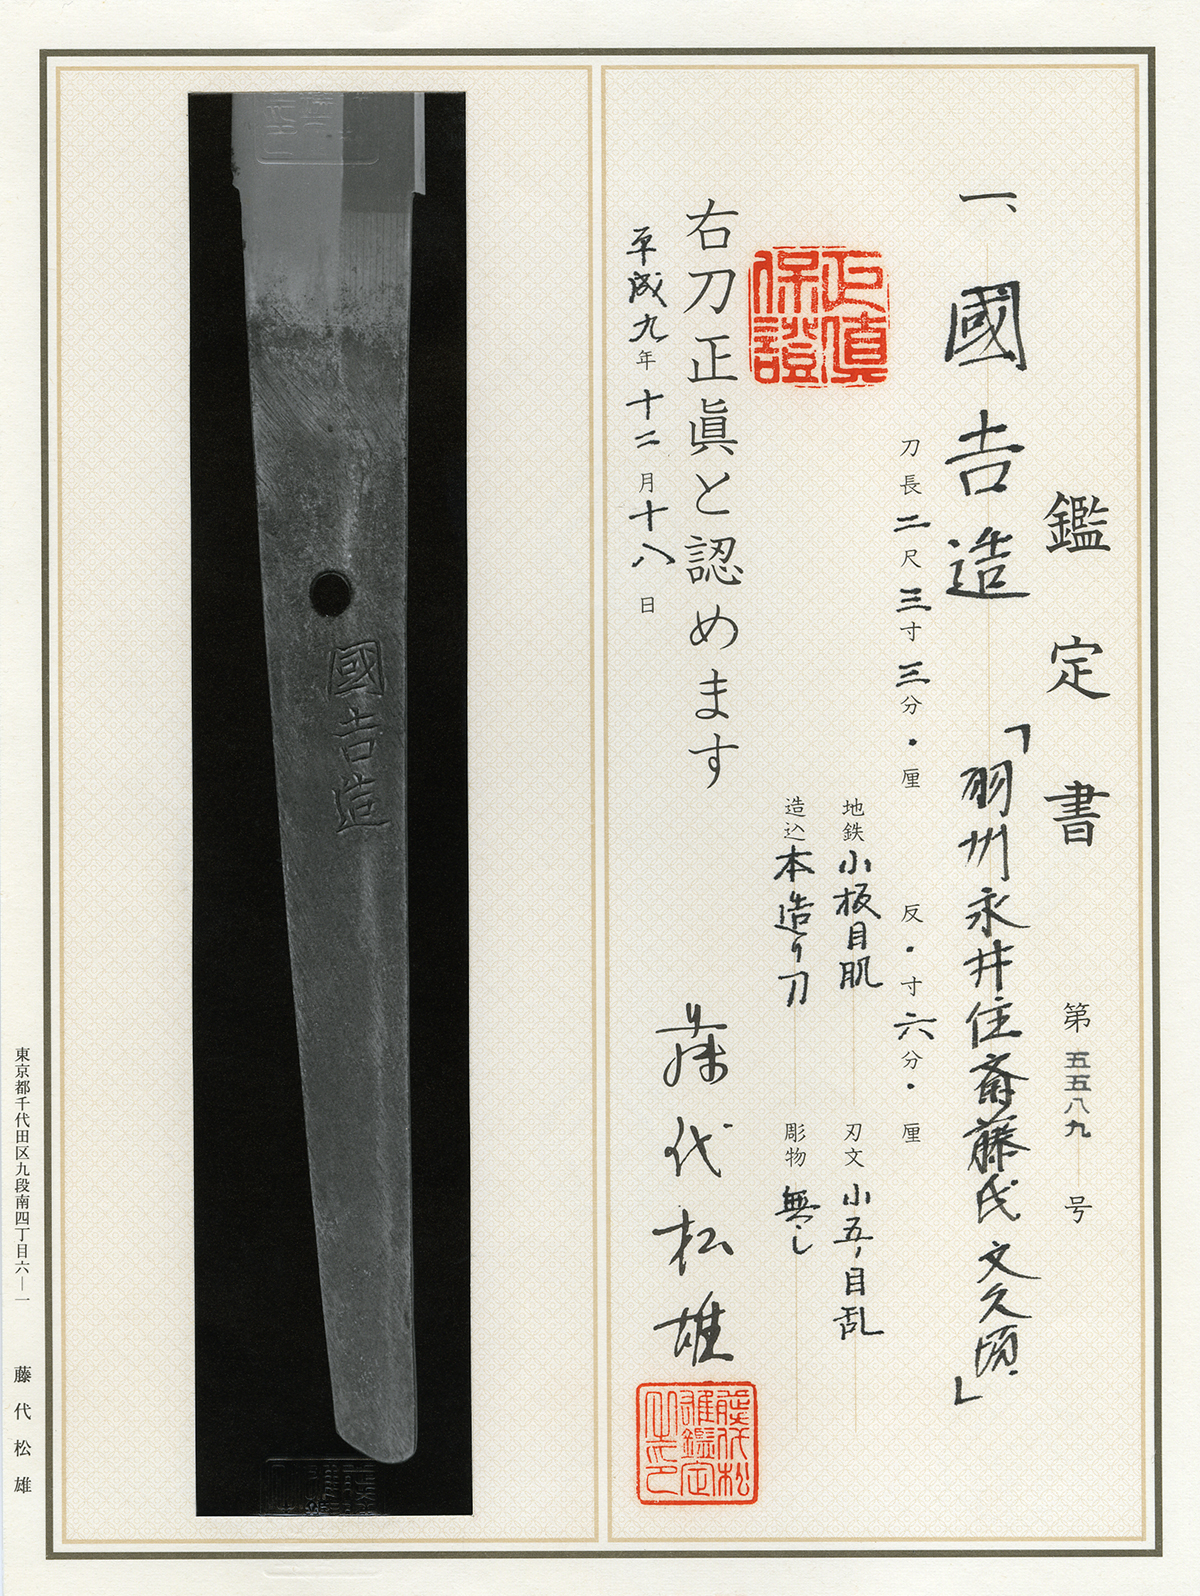 鑑定書
第五五八九号
一、國吉造
「羽州永井住斎藤氏文久頃」
刀長二尺三寸三分・厘
反・寸六分・厘
地鉄 小板目肌
刃文 小五ノ目乱
造込 本造り刀
彫物 無し
正真保證
右刀正眞と認めます
平成九年十二月十八日
藤代松雄
藤代松雄鑑定之印
國吉造
東京都千代田区九段南四丁目六―一
藤代松雄